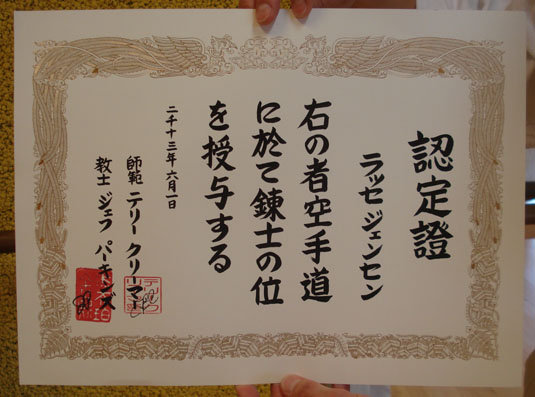 認定證
ラッセ ジェンセン
右の者空手道
に於て錬士の位
を授与する
二千十三年六月一日
師範 テリー クリーマー
教士 ジェフ パーキンズ